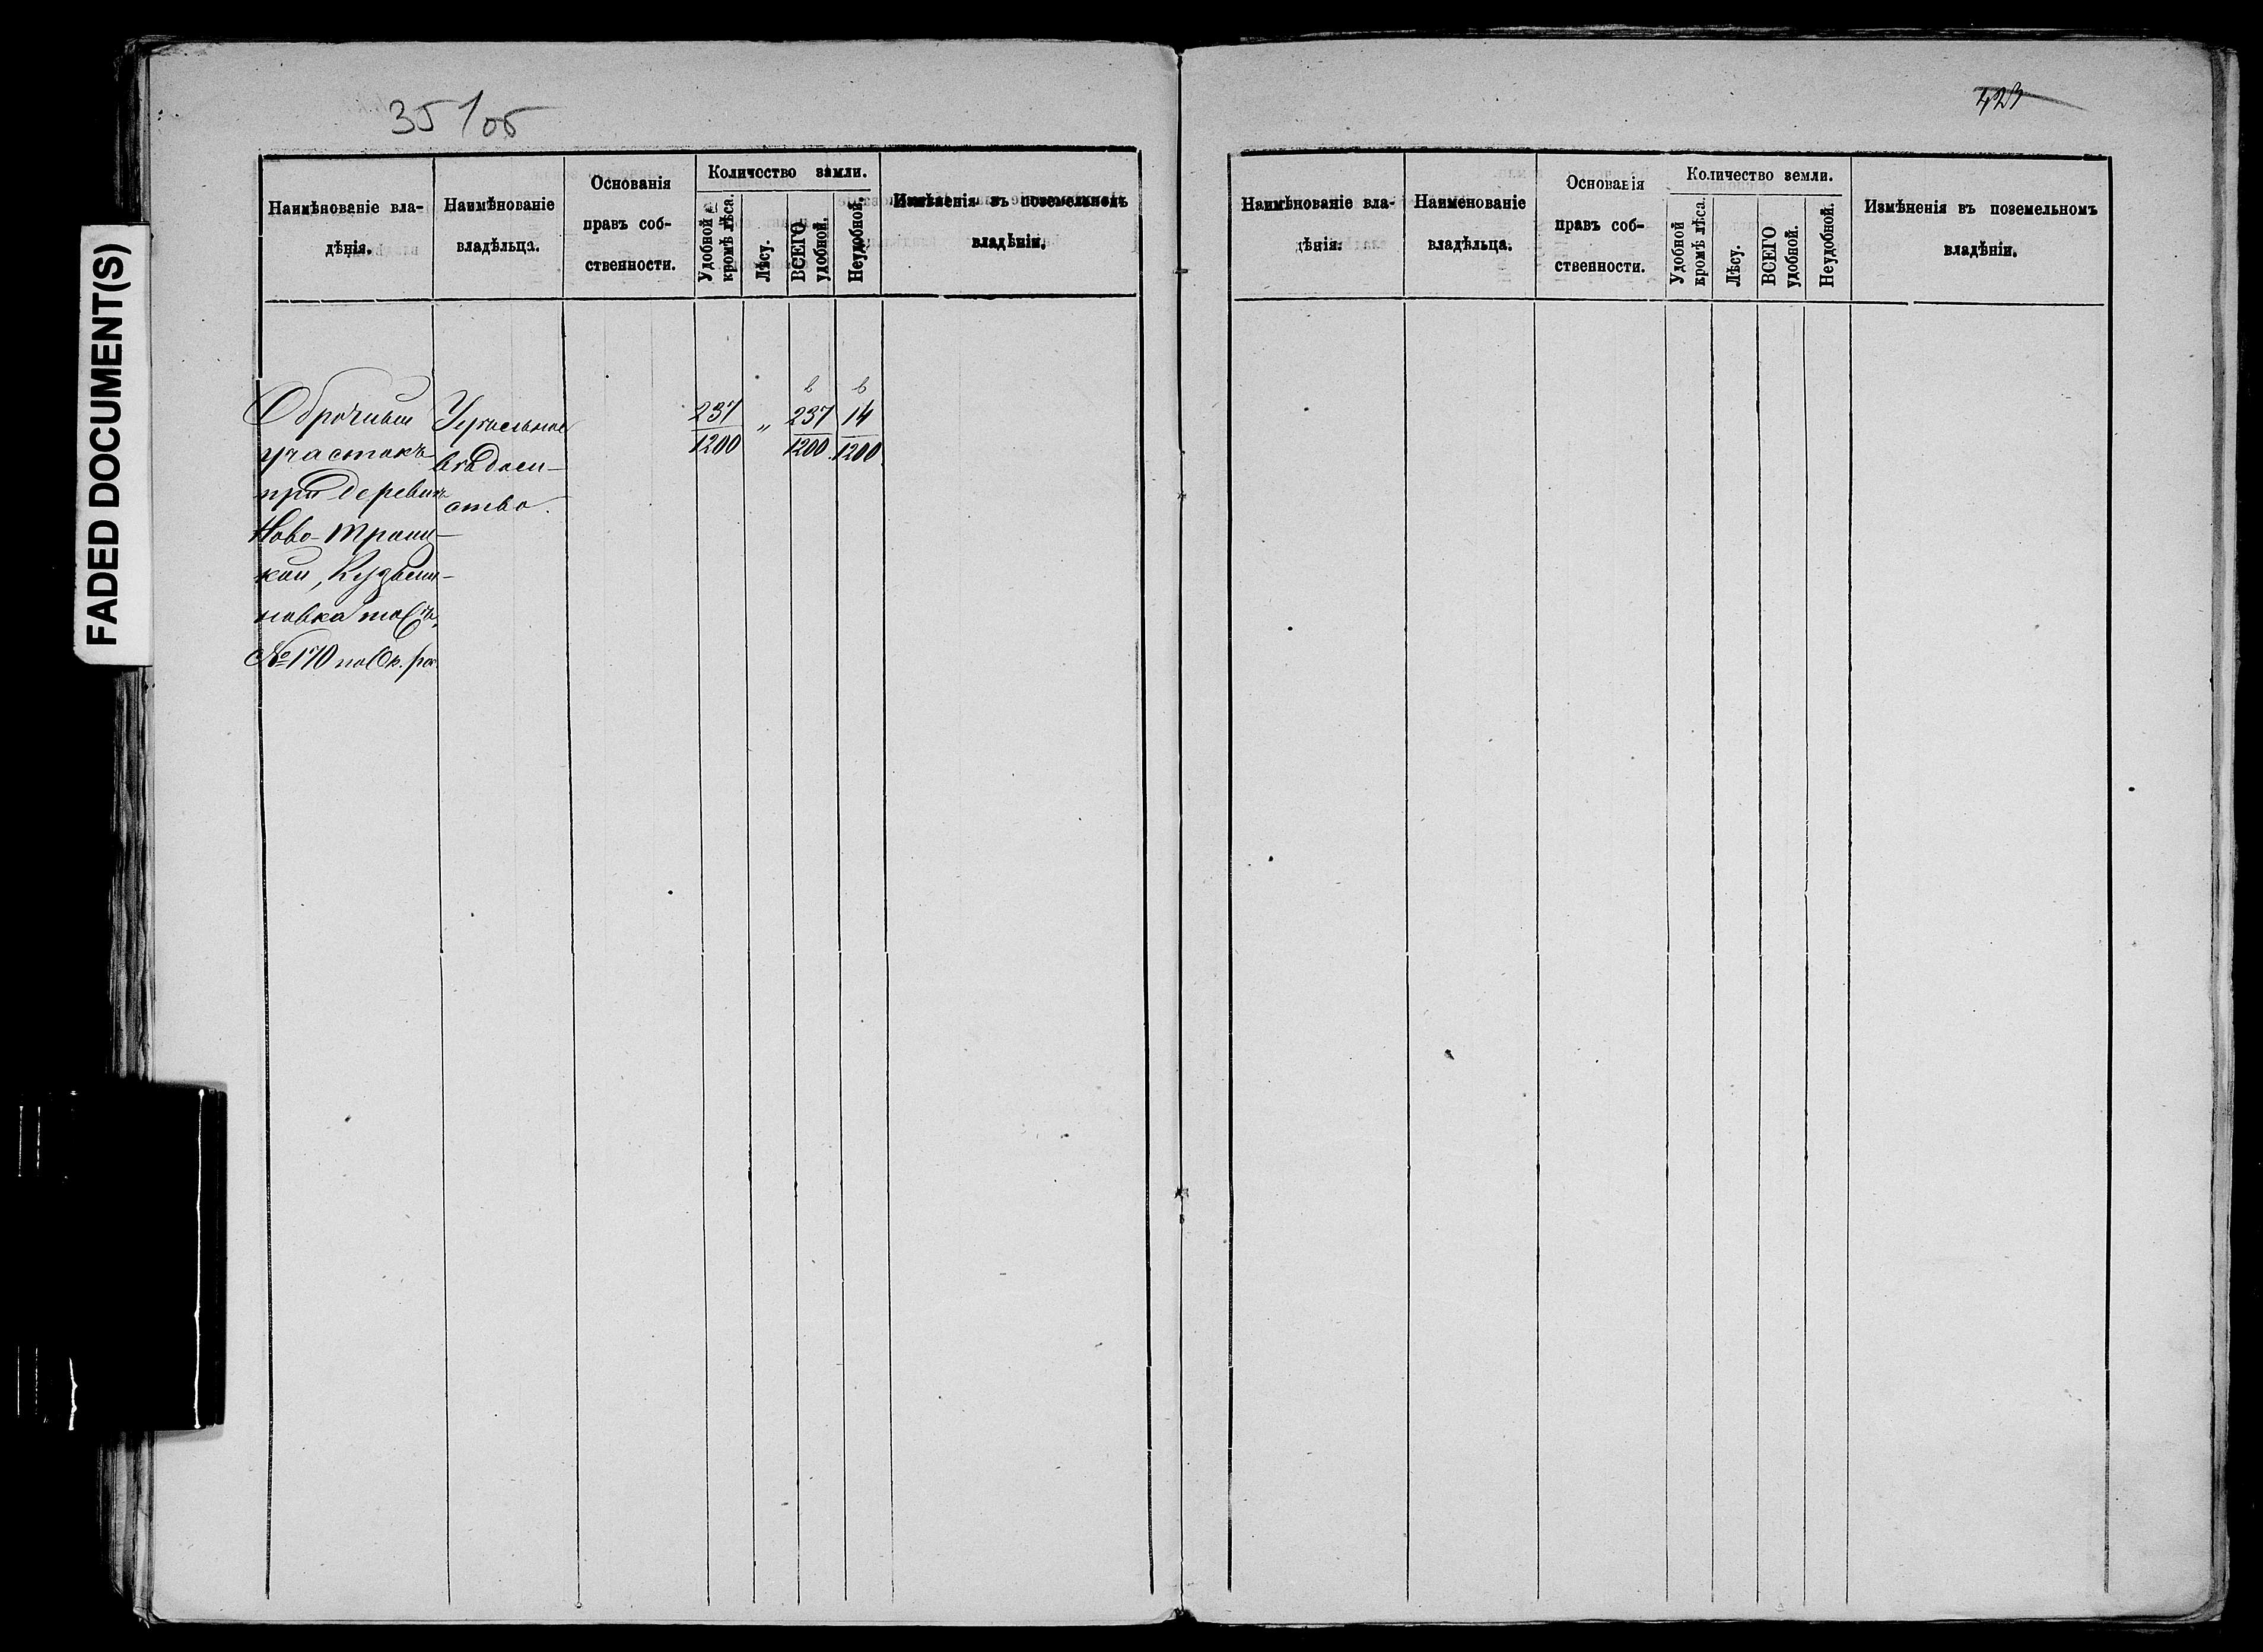 FADED DOCUMENT(S)
35/05
Наимѣнованіе вла-
дѣнія.
Наимѣнованіе
владѣльца.
Основанія
правъ соб-
ственности.
Количество земли.
Удобной
кромѣ лѣса.
Лѣсу.
ВСЕГО
удобной.
Неудобной.
Измѣненія въ поземельномъ
владѣніи.
Оброчный
участокъ
при деревнѣ
Ново-Троиц-
кой, Кузьми-
новка тожъ,
№ 170 по Ок.
Удѣльное
вѣдом-
ство.
237
1200
"
237
1200
14
1200
423
Наимѣнованіе вла-
дѣнія:
Наименованіе
владѣльца.
Основанія
правъ соб-
ственности.
Количество земли.
Удобной
кромѣ лѣса.
Лѣсу.
ВСЕГО
удобной.
Неудобной.
Измѣненія въ поземельномъ
владѣніи.